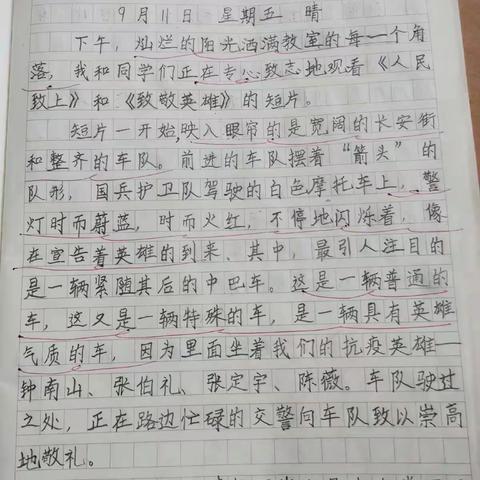 9月11日 星期五 晴
下午，灿烂的阳光洒满教室的每一个角
落，我和同学们正在专心致志地观看《人民
致上》和《致敬英雄》的短片。
短片一开始，映入眼帘的是宽阔的长安街
和整齐的车队。前进的车队摆着“箭头”的
队形，国兵护卫队驾驶的白色摩托车上，警
灯时而蔚蓝，时而火红，不停地闪烁着，像
在宣告着英雄的到来、其中，最引人注目的
是一辆紧随其后的中巴车。这是一辆普通的
车，这又是一辆特殊的车，是一辆具有英雄
气质的车，因为里面坐着我们的抗疫英雄—
钟南山、张伯礼、张定宇、陈薇。车队驶过
之处，正在路边忙碌的交警向车队致以崇高
地敬礼。